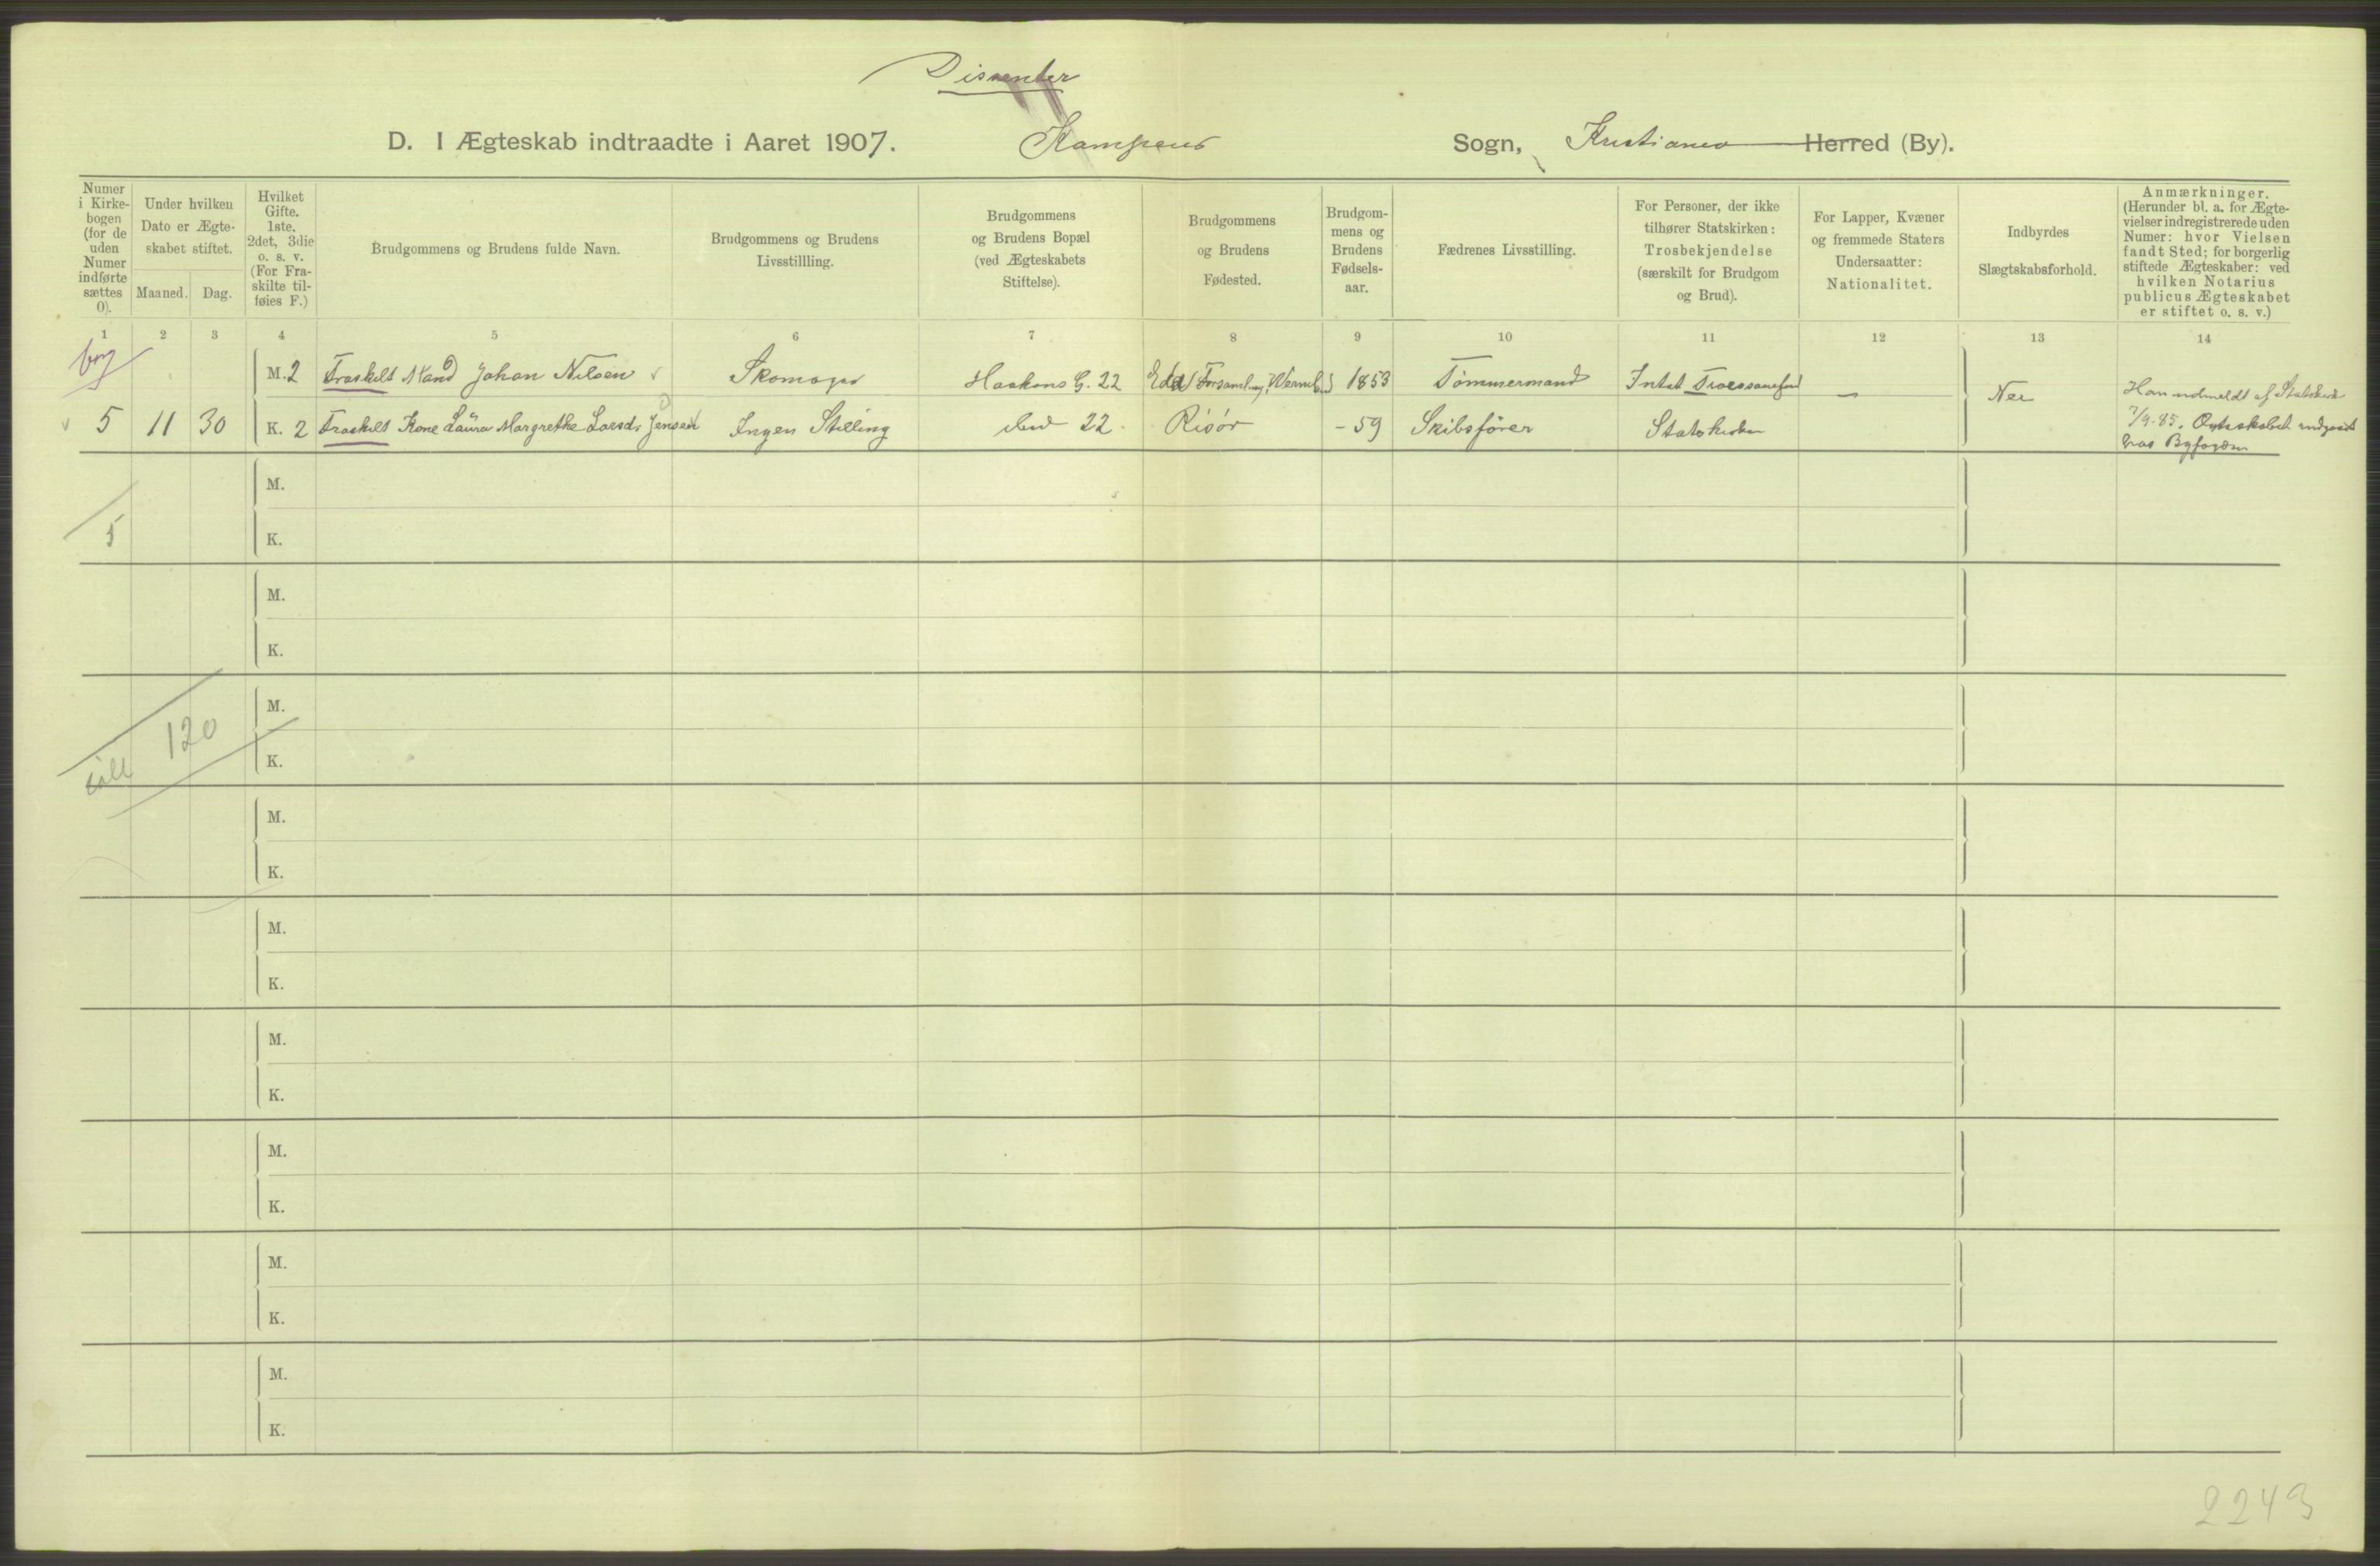 Dissenter
D. I Ægteskab indtraadte i Aaret 1907. Kampens Sogn, Kristiania Herred (By).
Numer i Kirke-bogen (for de uden Numer indførte sættes 0).
Under hvilken Dato er Ægte-skabet stiftet.
Maaned. Dag.
Hvilket Gifte. 1ste, 2det, 3die o. s. v. (For Fra-skilte til-føies F.)
Brudgommens og Brudens fulde Navn.
Brudgommens og Brudens Livsstillling.
Brudgommens og Brudens Bopæl (ved Ægteskabets Stiftelse).
Brudgommens og Brudens Fødested.
Brudgom-mens og Brudens Fødsels-aar.
Fædrenes Livsstilling.
For Personer, der ikke tilhører Statskirken: Trosbekjendelse (særskilt for Brudgom og Brud).
For Lapper, Kvæner og fremmede Staters Undersaatter: Nationalitet.
Indbyrdes Slægtskabsforhold.
Anmærkninger. (Herunder bl. a. for Ægte-vielser indregistrerede uden Numer: hvor Vielsen fandt Sted; for borgerlig stiftede Ægteskaber: ved hvilken Notarius publicus Ægteskabet er stiftet o. s. v.)
1 2 3 4 5 6 7 8 9 10 11 12 13 14
borg
M. 2 Fraskilt Mand Johan Nilsen Skomager Haakons G. 22 Eda Forsamling, Værml. 1853 Tømmermand Intet Troessamfund — Nei
5 11 30 K. 2 Fraskilt Kone Laura Margrethe Larsd. Jensen Ingen Stilling ibid 22. Risör - 59 Skibsfører Statskirken
Han udmeldt af Statskirk
7/9.85. Ægteskabet indgaaet
hos Byfogden
M.
5 K.
M.
K.
M.
120
K.
M.
K.
M.
K.
M.
K.
M.
K.
M.
K.
M.
K.
2243